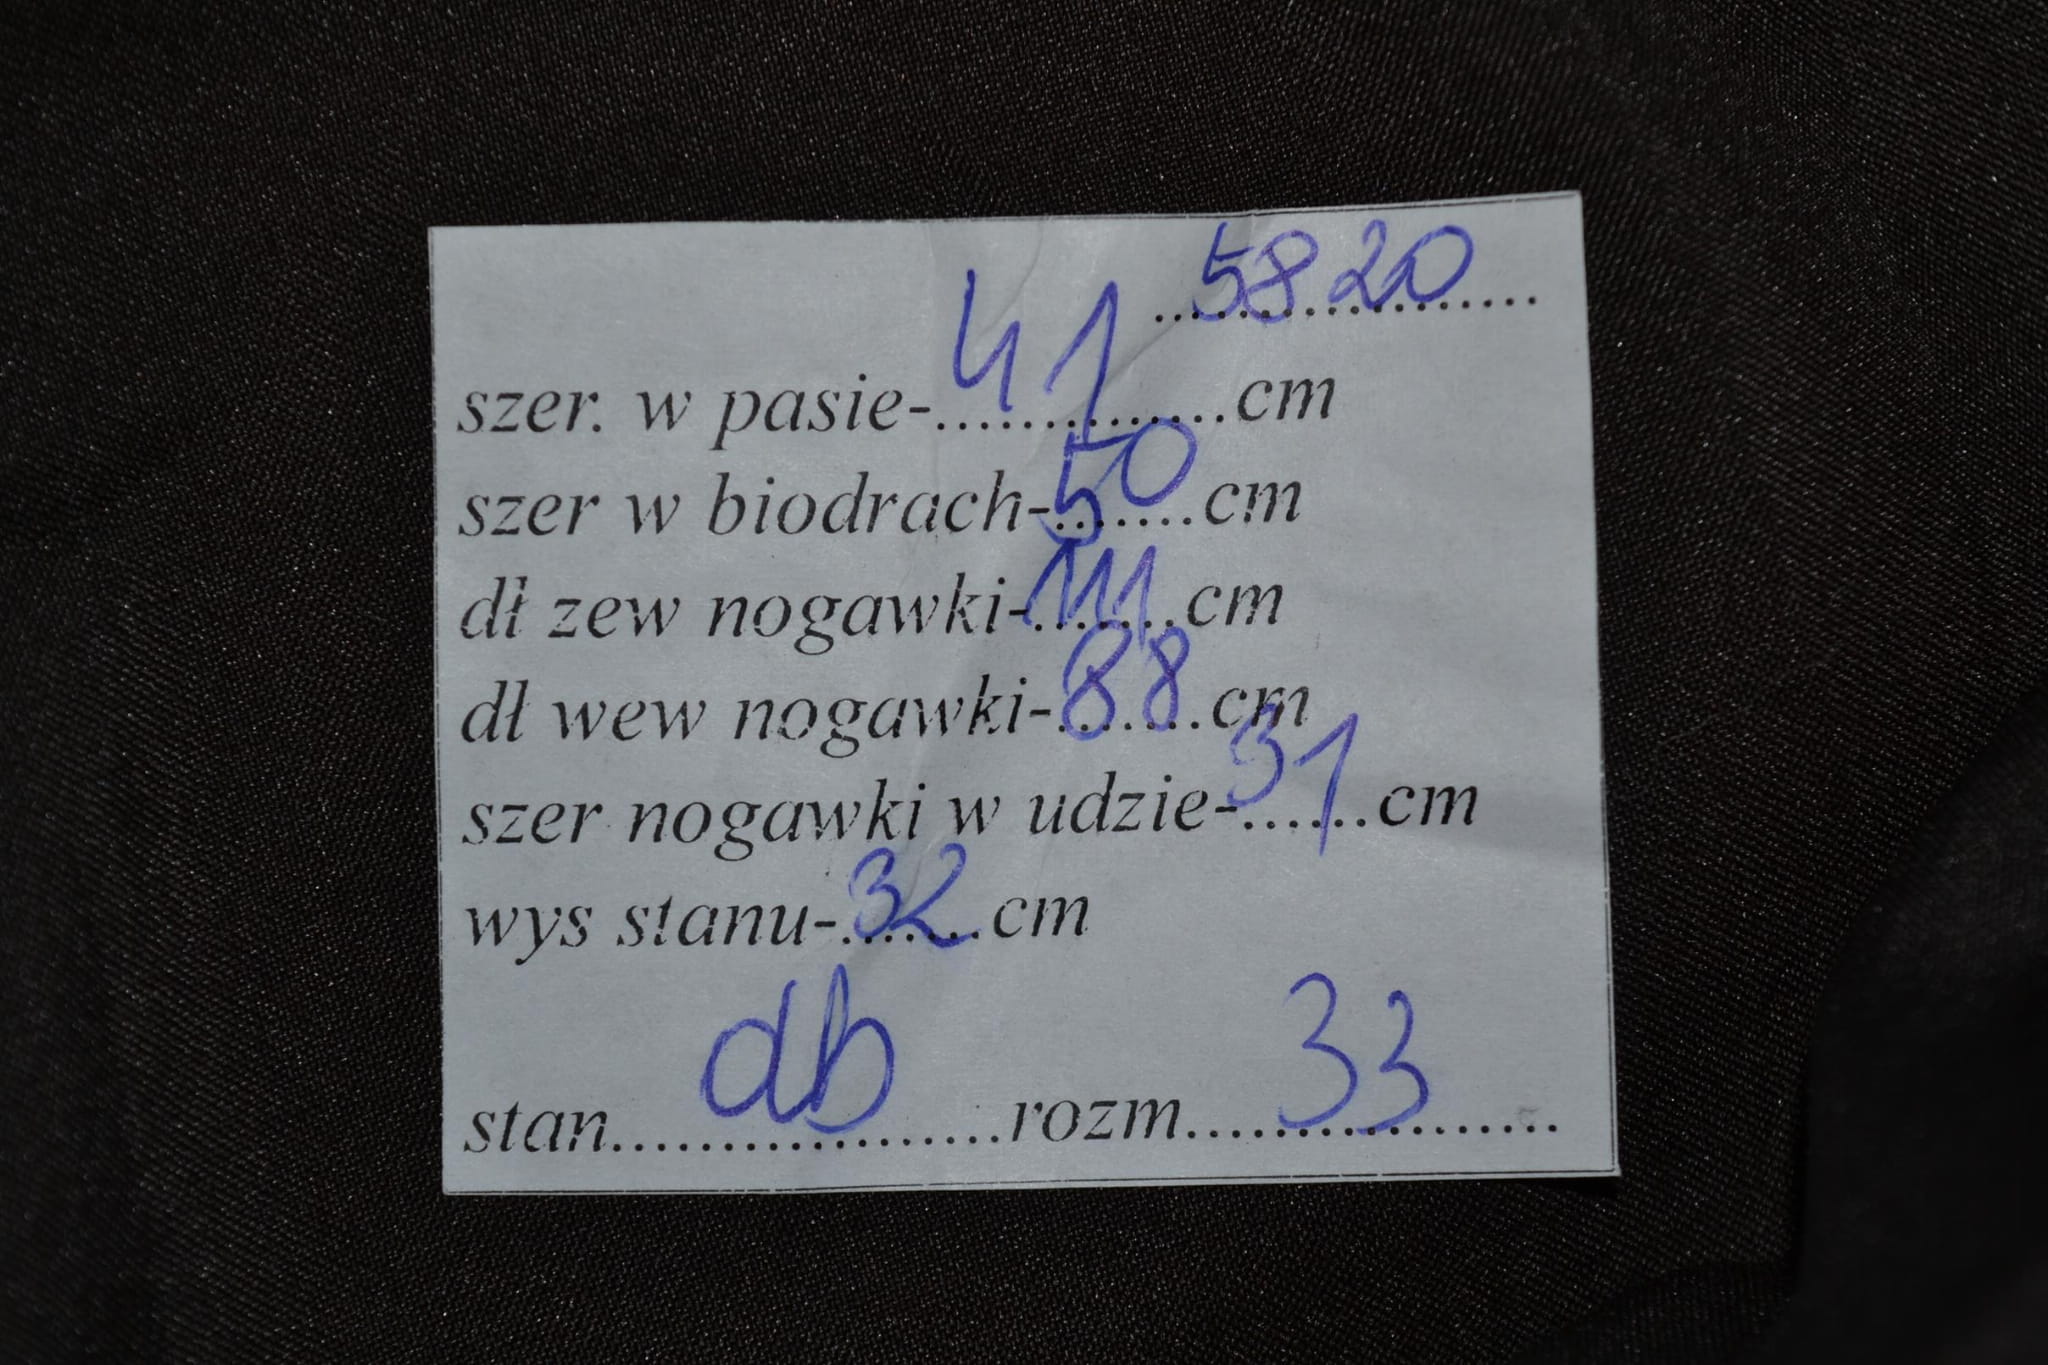 5820
szer. w pasie-41cm
szer w biodrach-50cm
dł zew nogawki-111cm
dł wew nogawki-88cm
szer nogawki w udzie-31cm
wys stanu-32cm
stan db rozm 33